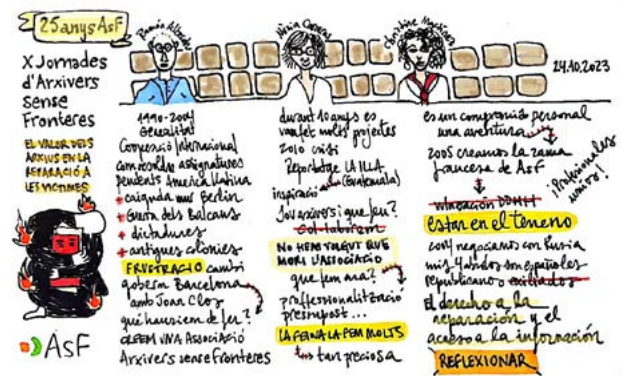 25 anys AsF
X Jornades
d'Arxivers
Sense
Fronteres
EL VALOR DELS
ARXIUS EN LA
REPARACIÓ A
LES VÍCTIMES
AsF
Ramón Alberch
1990-2001
Generalitat
Cooperació Internacional
assignatures
pendents Amèrica llatina
+ caiguda mur Berlín
+ Guerra dels Balcans
+ dictadures
+ antigues colònies
FRUSTRACIÓ canvi
govern Barcelona
amb Joan Clos
què hauríem de fer?
CREEM UNA ASSOCIACIÓ
Arxivers sense Fronteres
Núria Carreras
durant 10 anys es
van fet molts projectes
2010 crisi
Reportatge LA ILLA
inspiració (Guatemala)
Sou arxivers i què feu?
Col·laborem
NO HEM VOLGUT QUE
MORI L'ASSOCIACIÓ
què fem ara?
professionalització
pressupost...
LA FEINA LA FEM MOLTS
tan preciosa
Christine Martínez
24.10.2023
es un compromiso personal
una aventura
2005 creamos la rama
francesa de AsF
¡Profesionales
unios!
vinculación DDHH
estar en el terreno
negociamos con Rusia
mis 4 abuelos son españoles
republicanos exiliados
El derecho a la
reparación y el
acceso a la información
REFLEXIONAR